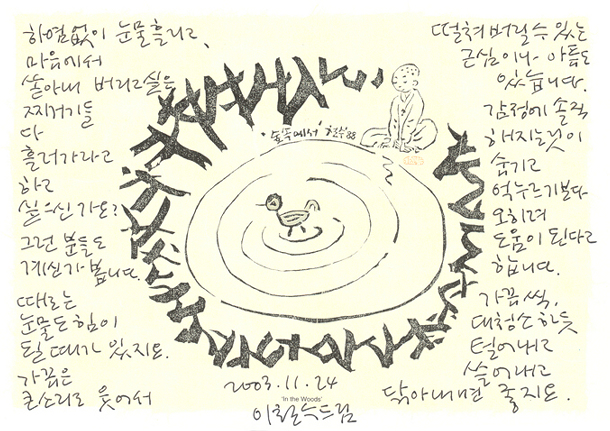 하염없이 눈물흘리고,
마음에서
쏟아내 버리고싶은
찌꺼기들
다
흘러가라고
하고
싶으신가요?
그런 분들도
계신가 봅니다.
때로는
눈물도 힘이
될 때가 있지요.
가끔은
큰소리로 웃어서
떨쳐버릴 수 있는
근심이나 아픔도
있습니다.
감정에 솔직
해지는것이
숨기고
억누르기보다
오히려
도움이 된다고
합니다.
가끔씩,
대청소하듯
털어내고
쓸어내고
닦아내면 좋지요.
'숲속에서' 철수 '88
2003.11.24
'In the Woods'
이철수드림